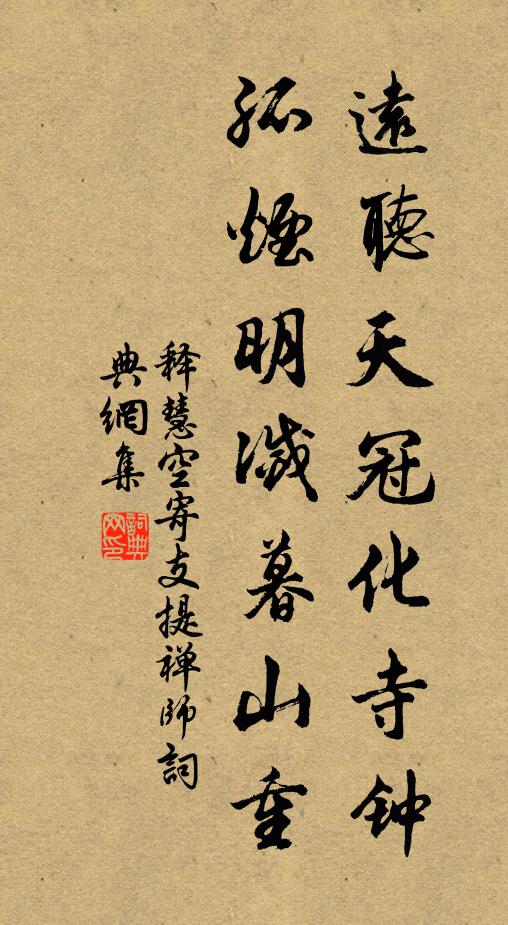 遠聽天冠化寺钟
孤煙明滅暮山重
释慧空寄支提禅師詞
典網集
詞典
网印